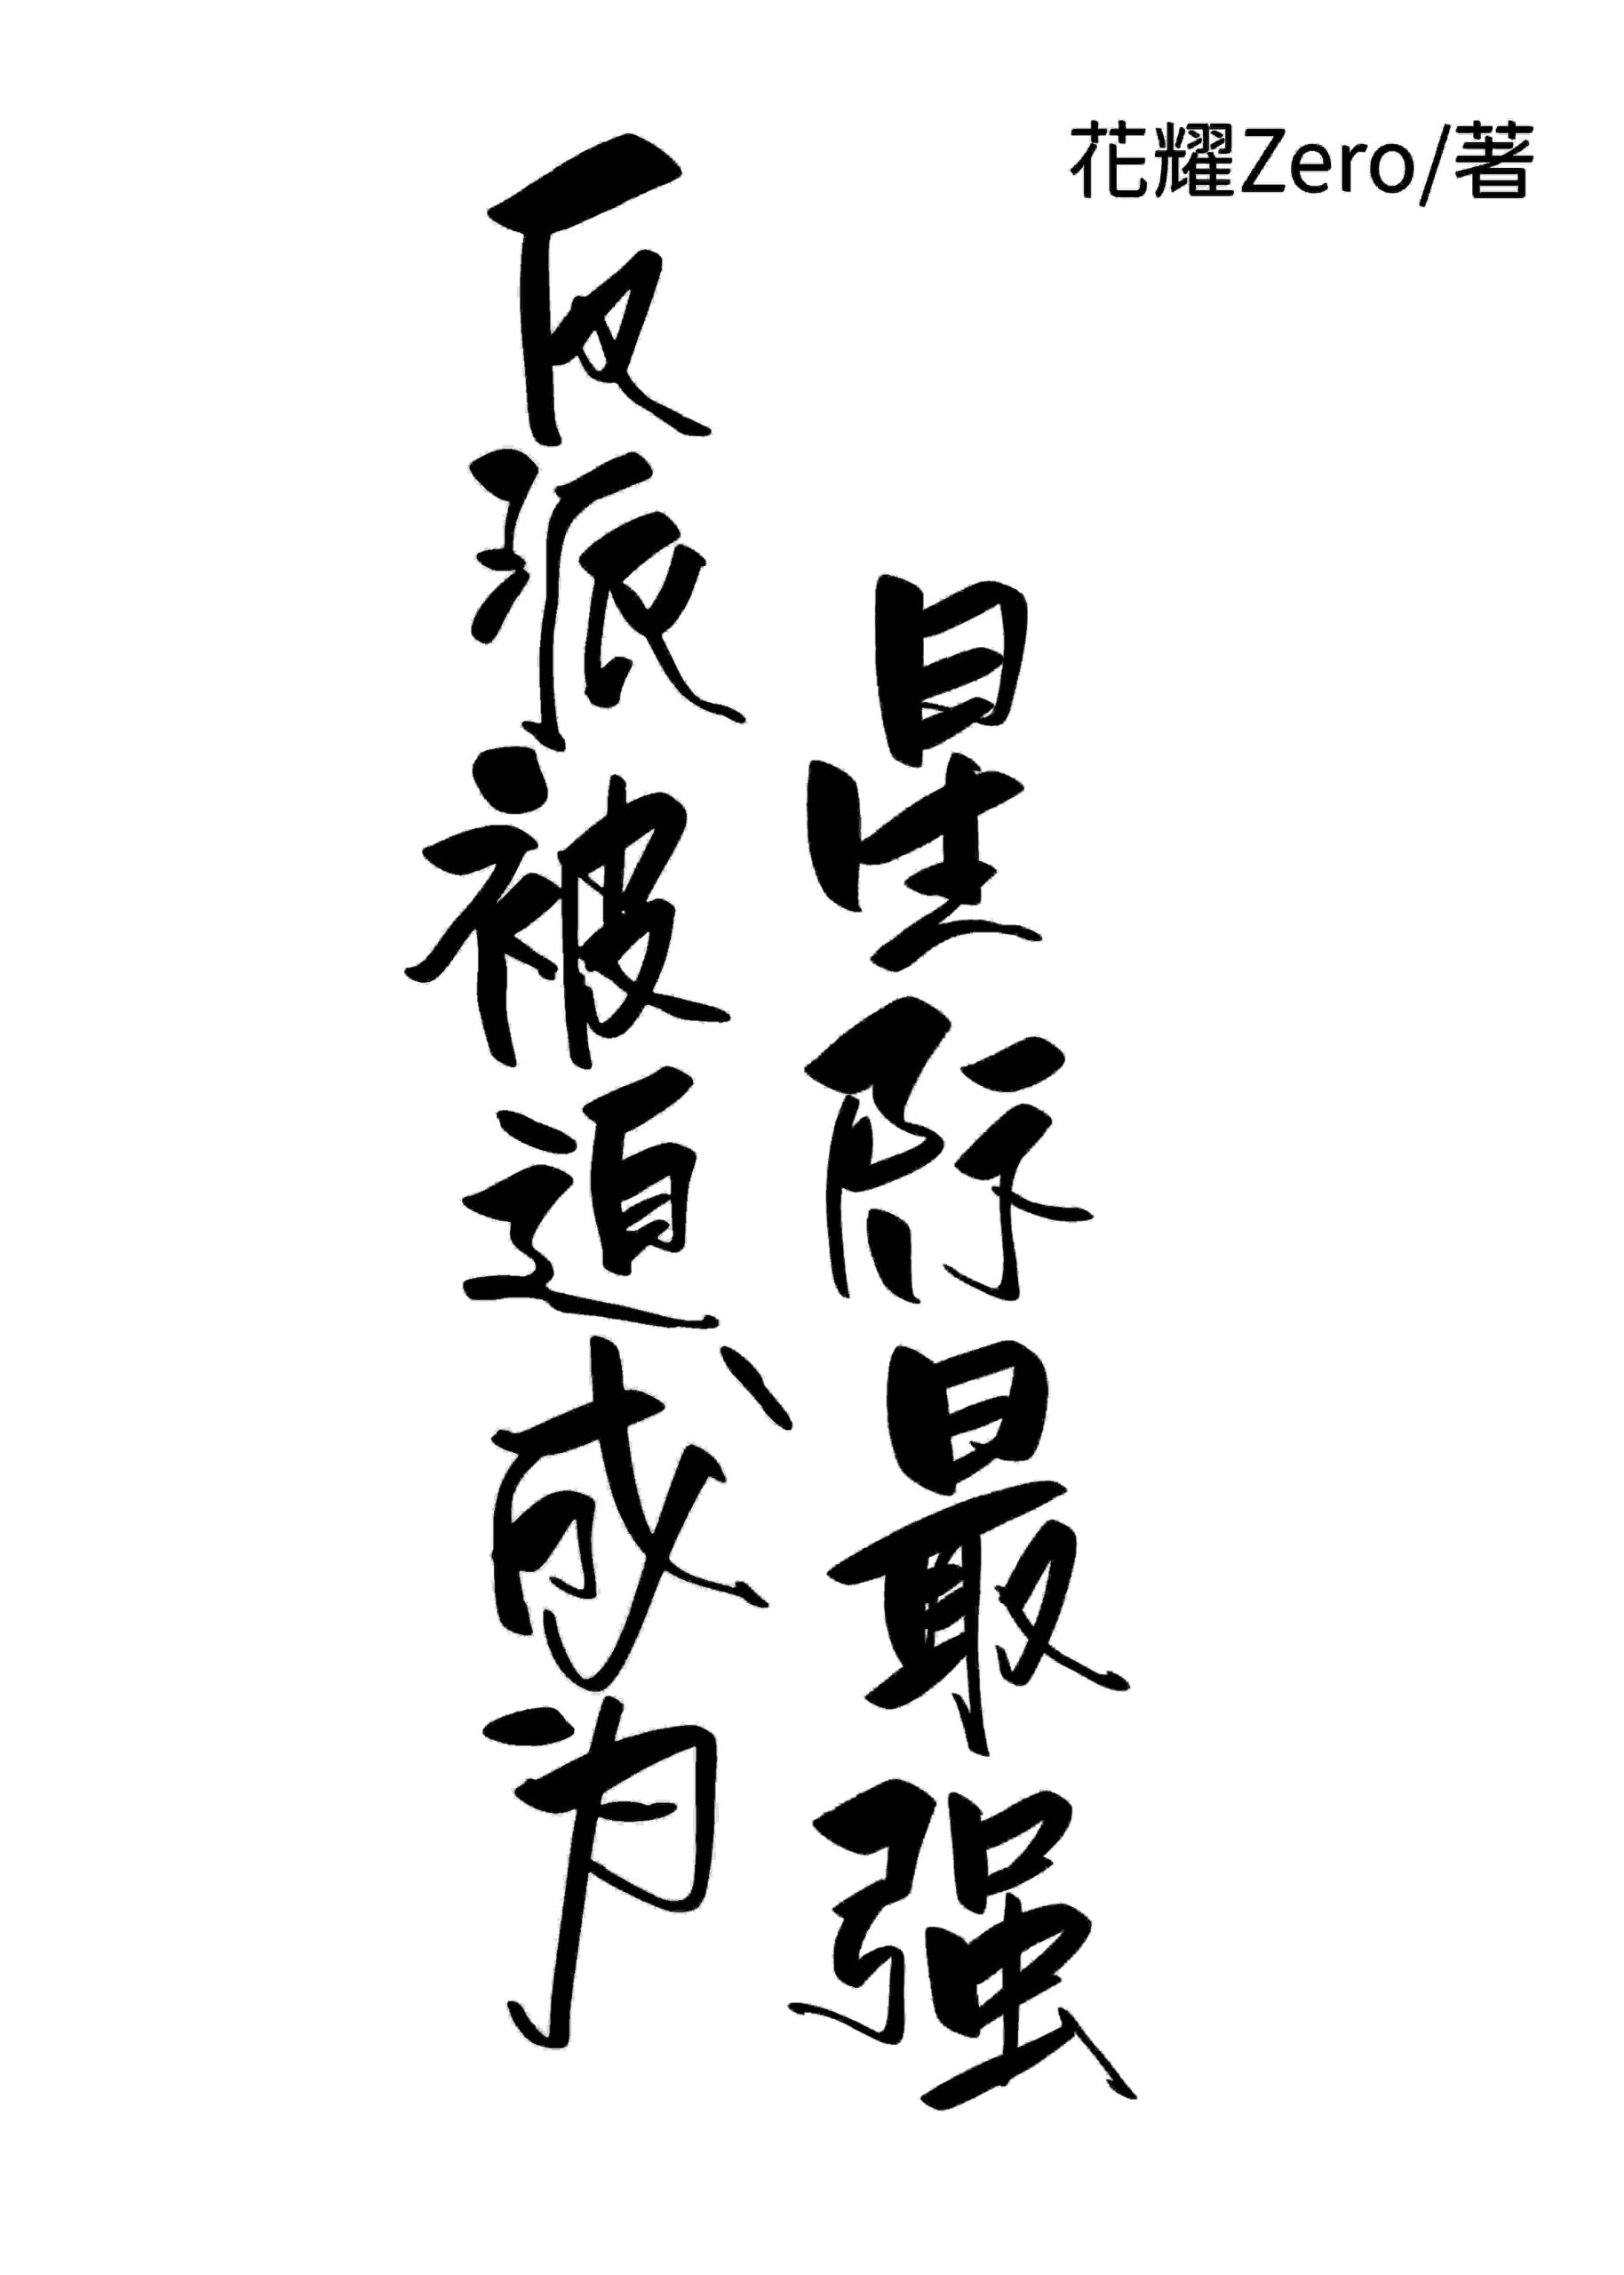 花耀Zero/著
星际最强
反派被迫成为